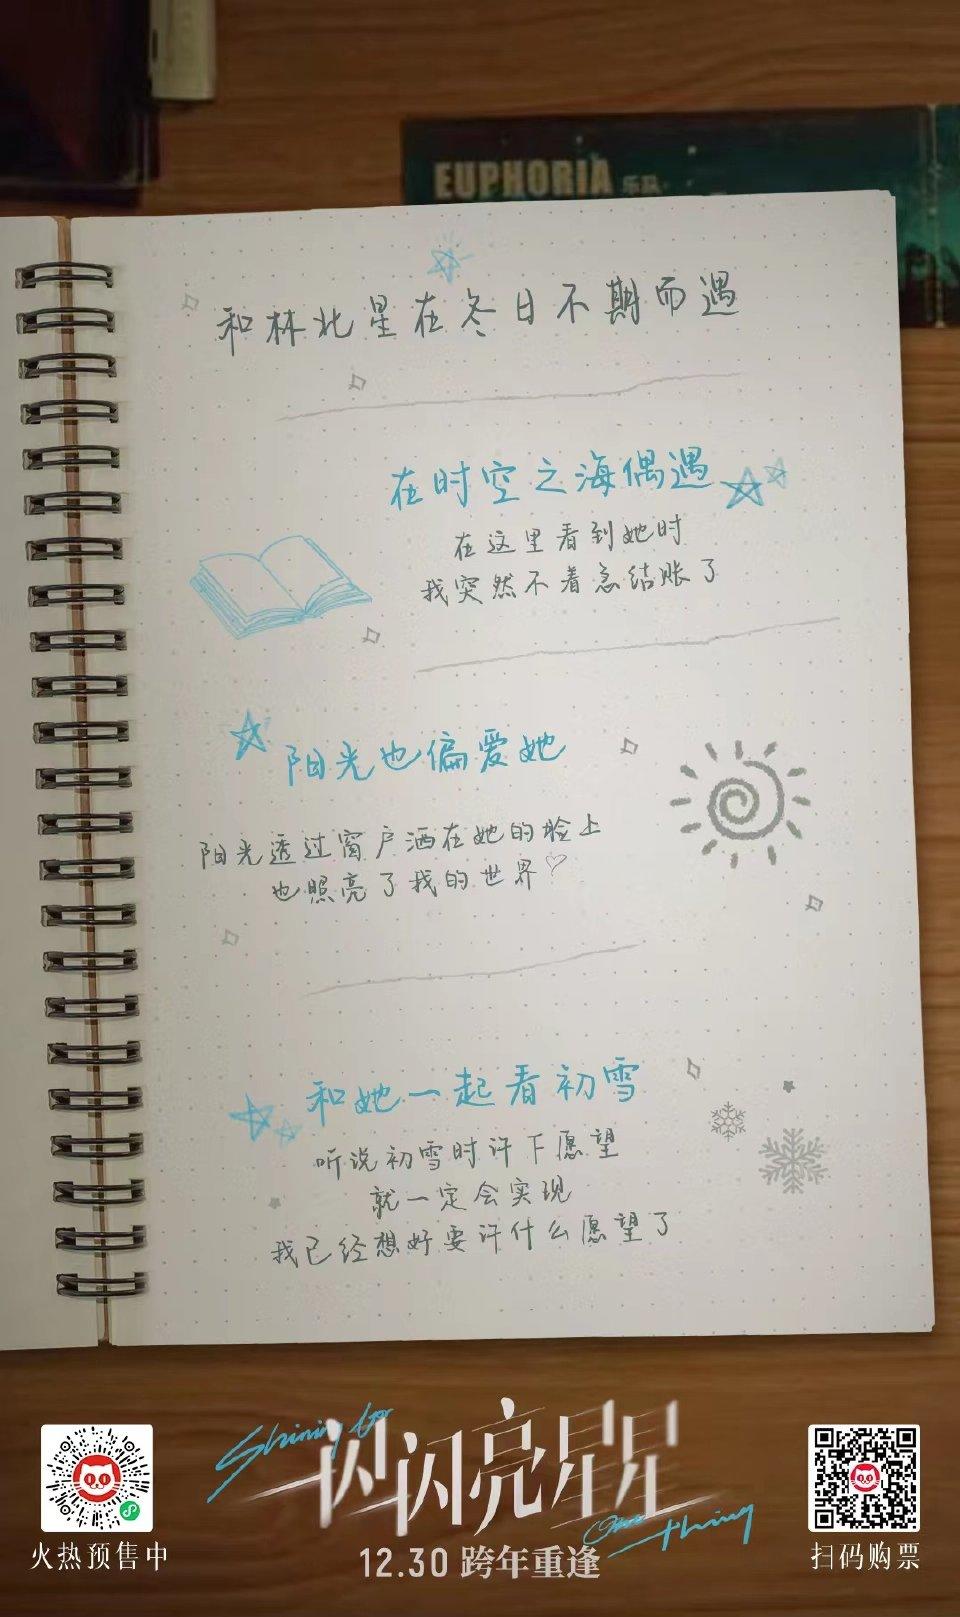 EUPHORIA 乐队
和林北星在冬日不期而遇
在时空之海偶遇
在这里看到她时
我突然不着急结账了
阳光也偏爱她
阳光透过窗户洒在她的脸上
也照亮了我的世界♡
和她一起看初雪
听说初雪时许下愿望
就一定会实现
我已经想好要许什么愿望了
Shining for
闪闪亮星星
One thing
火热预售中
12.30 跨年重逢
扫码购票